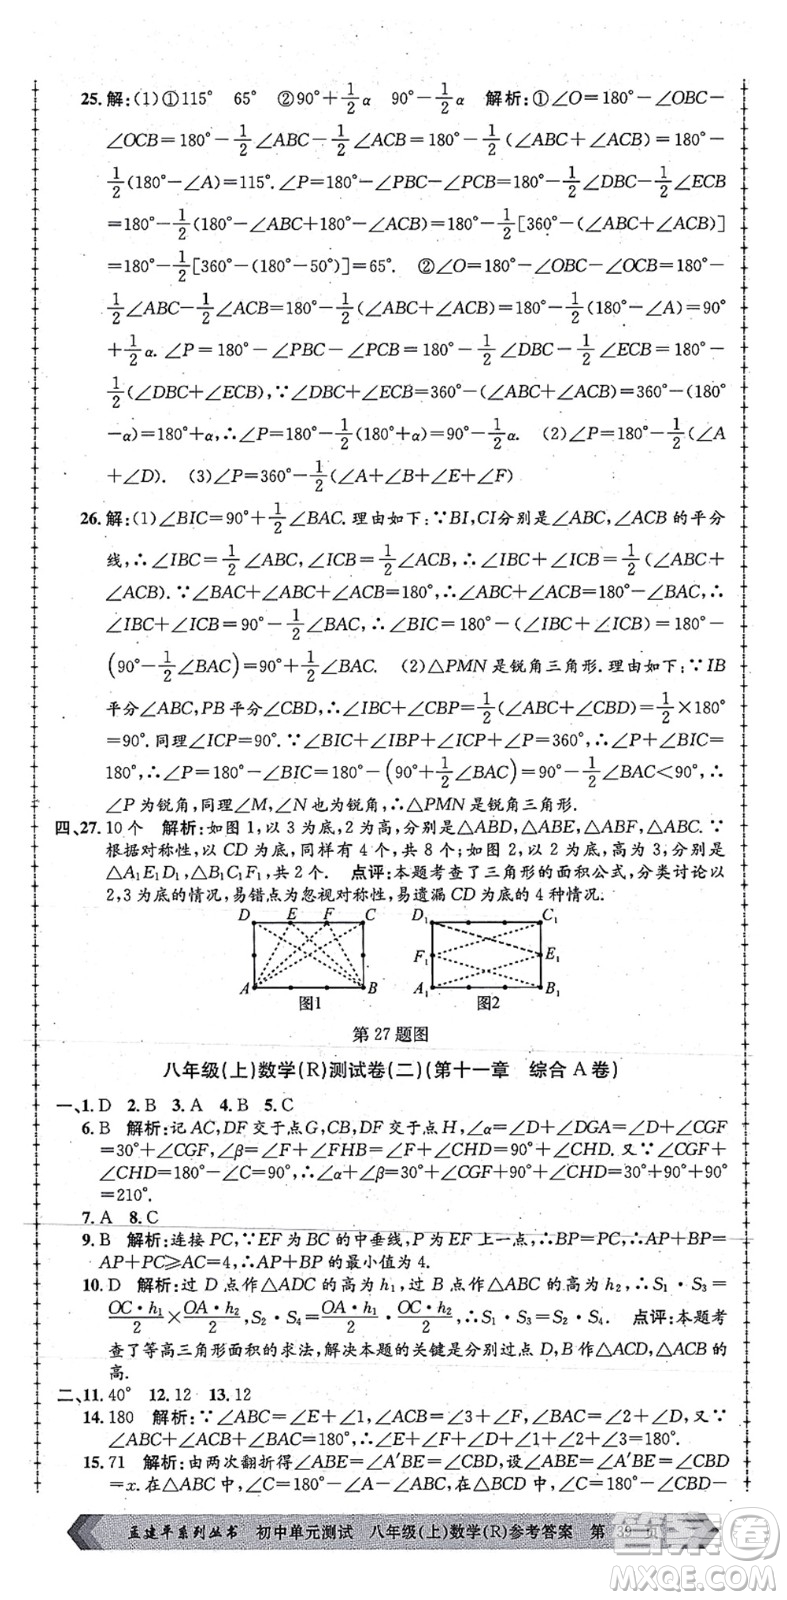 25. 解:(1)①115° 65° ②90°+1/2α 90°-1/2α 解析:①∠O=180°-∠OBC-
∠OCB=180°-1/2∠ABC-1/2∠ACB=180°-1/2(∠ABC+∠ACB)=180°-
1/2(180°-∠A)=115°.∠P=180°-∠PBC-∠PCB=180°-1/2∠DBC-1/2∠ECB
=180°-1/2(180°-∠ABC+180°-∠ACB)=180°-1/2[360°-(∠ABC+∠ACB)]
=180°-1/2[360°-(180°-50°)]=65°. ②∠O=180°-∠OBC-∠OCB=180°-
1/2∠ABC-1/2∠ACB=180°-1/2(∠ABC+∠ACB)=180°-1/2(180°-∠A)=90°
+1/2α.∠P=180°-∠PBC-∠PCB=180°-1/2∠DBC-1/2∠ECB=180°-
1/2(∠DBC+∠ECB),∵∠DBC+∠ECB=360°-(∠ABC+∠ACB)=360°-(180°
-α)=180°+α,∴∠P=180°-1/2(180°+α)=90°-1/2α. (2)∠P=180°-1/2(∠A
+∠D). (3)∠P=360°-1/2(∠A+∠B+∠E+∠F)
26. 解:(1)∠BIC=90°+1/2∠BAC.理由如下:∵BI,CI分别是∠ABC,∠ACB的平分
线,∴∠IBC=1/2∠ABC,∠ICB=1/2∠ACB,∴∠IBC+∠ICB=1/2(∠ABC+
∠ACB).∵∠BAC+∠ABC+∠ACB=180°,∴∠ABC+∠ACB=180°-∠BAC,∴
∠IBC+∠ICB=90°-1/2∠BAC,∴∠BIC=180°-(∠IBC+∠ICB)=180°-
(90°-1/2∠BAC)=90°+1/2∠BAC. (2)△PMN是锐角三角形.理由如下:∵IB
平分∠ABC,PB平分∠CBD,∴∠IBC+∠CBP=1/2(∠ABC+∠CBD)=1/2×180°
=90°.同理∠ICP=90°.∵∠BIC+∠IBP+∠ICP+∠P=360°,∴∠P+∠BIC=
180°,∴∠P=180°-∠BIC=180°-(90°+1/2∠BAC)=90°-1/2∠BAC<90°,∴
∠P为锐角,同理∠M,∠N也为锐角,∴△PMN是锐角三角形.
四、27. 10个 解析:如图1,以3为底,2为高,分别是△ABD,△ABE,△ABF,△ABC.∵
根据对称性,以CD为底,同样有4个,共8个;如图2,以2为底,高为3,分别是
△A₁E₁D₁,△B₁C₁F₁,共2个. 点评:本题考查了三角形的面积公式,分类讨论以
2,3为底的情况,易错点为忽视对称性,易遗漏CD为底的4种情况.
D E F C D₁ C₁
F₁ E₁
A B A₁ B₁
图1 图2
第27题图
八年级(上)数学(R)测试卷(二)(第十一章 综合A卷)
一、1. D 2. B 3. A 4. B 5. C
6. B 解析:记AC,DF交于点G,CB,DF交于点H,∠α=∠D+∠DGA=∠D+∠CGF
=30°+∠CGF,∠β=∠F+∠FHB=∠F+∠CHD=90°+∠CHD.又∵∠CGF+
∠CHD=180°-∠C=90°,∴∠α+∠β=30°+∠CGF+90°+∠CHD=30°+90°+90°
=210°.
7. A 8. C
9. B 解析:连接PC,∵EF为BC的中垂线,P为EF上一点,∴BP=CP,∴AP+BP=
AP+PC≥AC=4,∴AP+BP的最小值为4.
10. D 解析:过D点作△ADC的高为h₁,过B点作△ABC的高为h₂,∴S₁·S₃=
OC·h₁/2×OA·h₂/2,S₂·S₄=OA·h₁/2·OC·h₂/2,∴S₁·S₃=S₂·S₄. 点评:本题考
查了等高三角形面积的求法,解决本题的关键是分别由点D,B作△ADC,△ACB的
高.
二、11. 40° 12. 12 13. 12
14. 180 解析:∵∠ABC=∠E+∠1,∠ACB=∠3+∠F,∠BAC=∠2+∠D,又∵
∠ABC+∠ACB+∠BAC=180°,∴∠D+∠E+∠F+∠1+∠2+∠3=180°.
15. 71 解析:由两次翻折得∠ABE=∠A′BE=∠A′BD,设∠ABE=∠A′BE=∠CBD
=x.在△ABC中,∠ABC+∠C+∠A=180°,∴∠C=180°-∠A-∠ABC=180°-
孟建平系列丛书 初中单元测试 八年级(上)数学(R)参考答案 第 39 页
答案卷
MXQE.COM